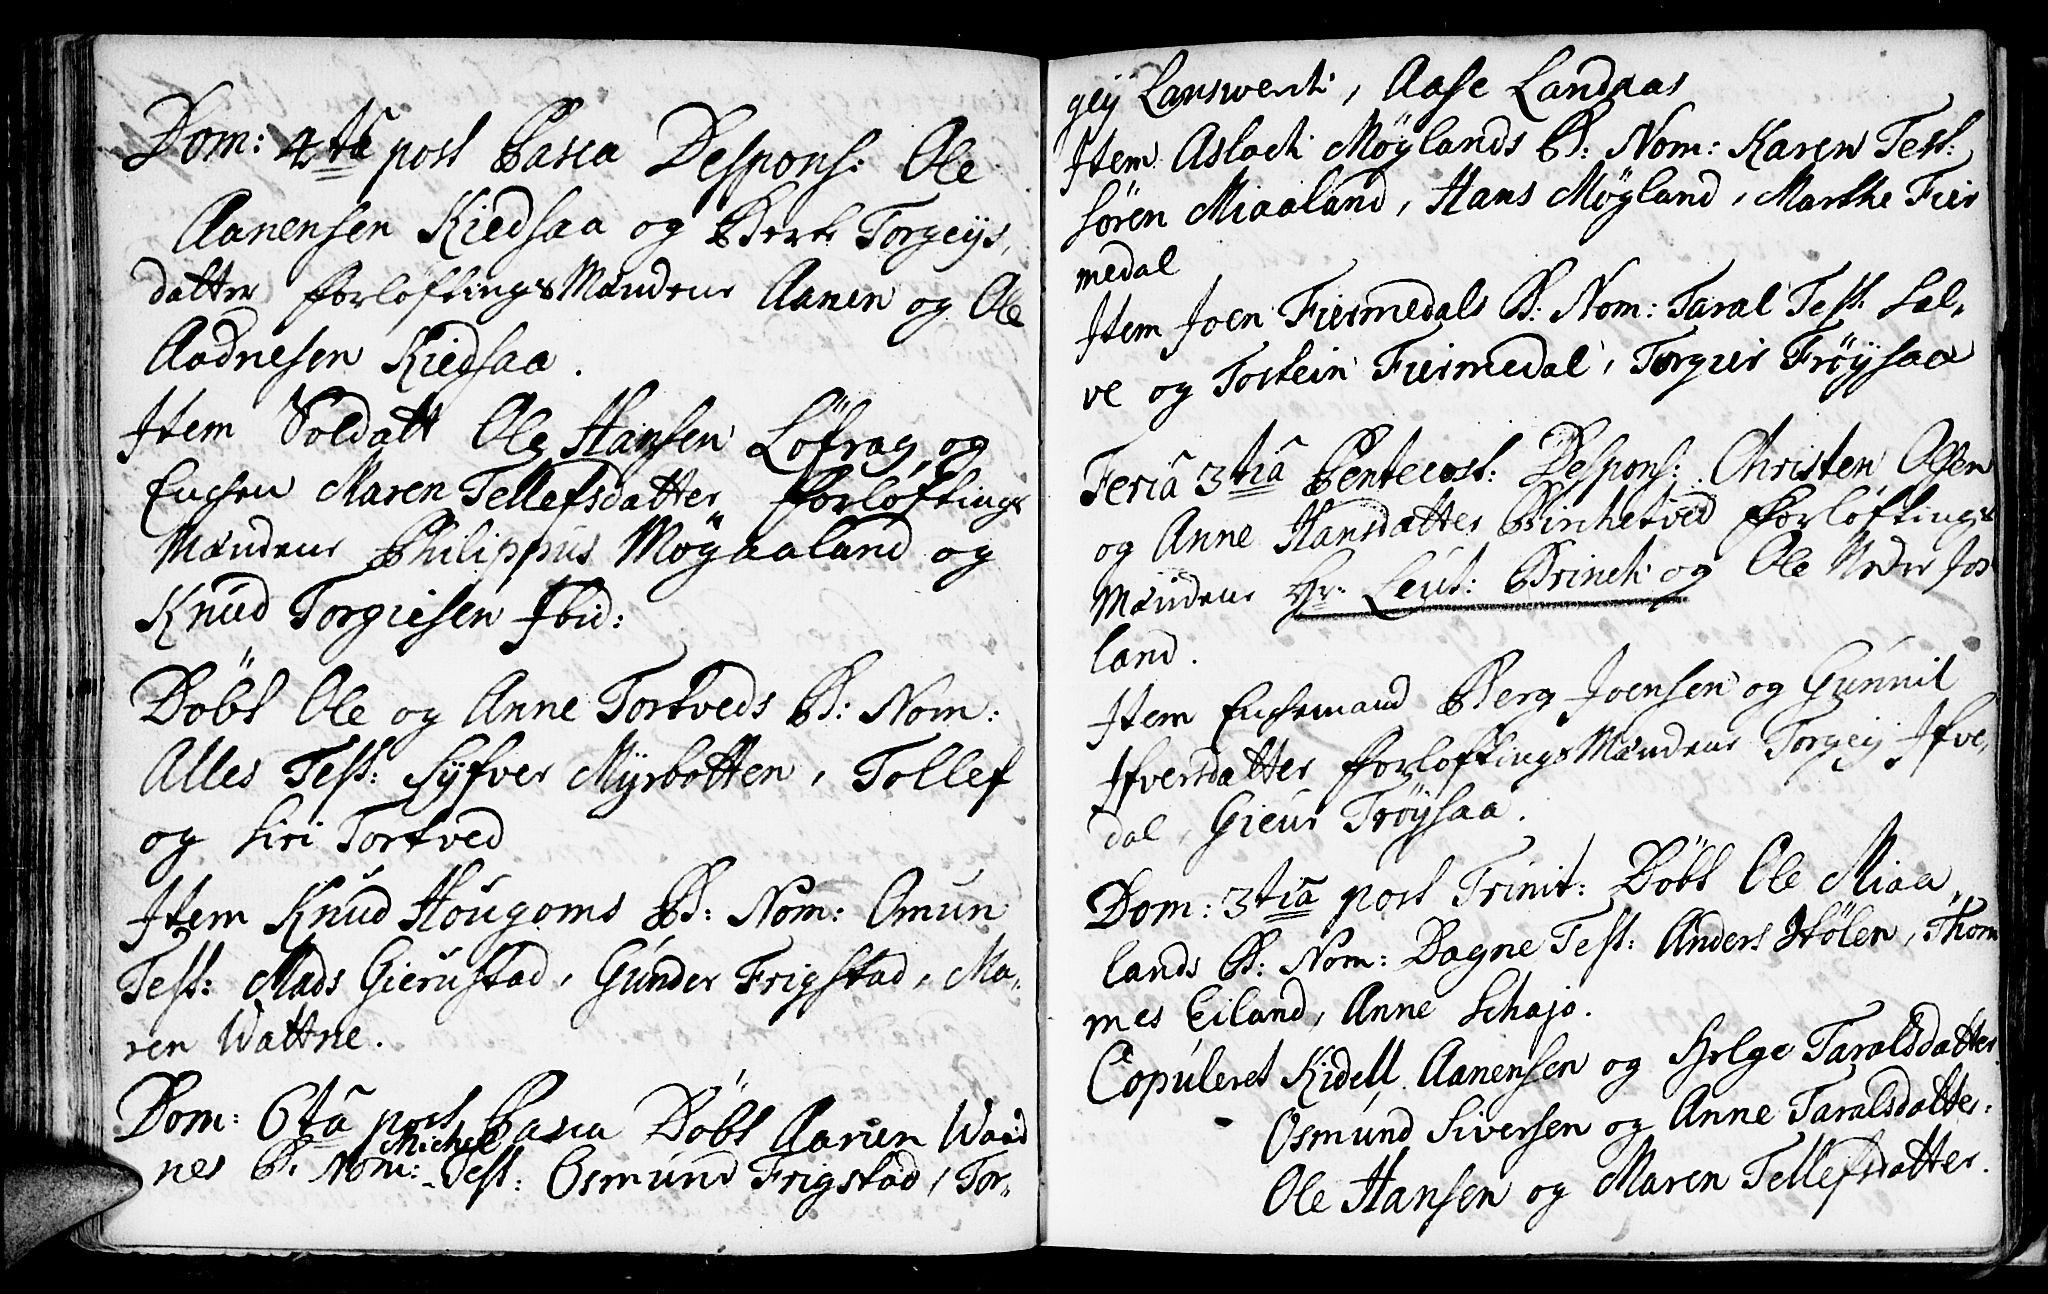 Dom: 4ta post Pasca Despons: Ole
Aanensen Kiedsaa og Berte Torgeys,
datter forlöftings Mændene Aanen og Ole
Aadnesen Kiedsaa.
Item Soldatt Ole Hansen Löfrag, og
Enchen Maren Tellefsdatter forlöftings
Mændene Philippus Mögaaland og
Knud Torgiesen Ibid:
Döbt Ole og Anne Tortveds B: Nom:
Alles Test: Syfver Myrbotten, Tollef
og Siri Tortved
Item Knud Hougoms B: Nom: Omun
Test: Mads Gierustad, Gunder Frigstad, Ma-
ren Wattne.
Dom: 6ta post Pasca Döbt Aarien Waad
nes B: Nom: Michel Test: Osmund Frigstad, Tor-
gey Landsverk, Aase Landaas
Item Aslach Möglands B: Nom: Karen Test:
Sören Miaaland, Hans Mögland, Marthe Fier
medal
Item Joen Fiermedals B: Nom: Taral Test: Sal-
ve og Tostein Fiermedal, Torgier Fröysaa
Feria 3tia Pentecost: Despons: Christen Olsen
og Anne Hansdatter Birchetved forlöftings
Mændene Hr. Leut: Brinch og Ole Neder Jos
land.
Item Enchemand Berg Joensen og Gunnil
Ifversdatter forlöftings Mændene Torgey Ifve,
dal, Gieur Fröysaa.
Dom: 3tia post Trinit: Döbt Ole Miaa
lands B: Nom: Dagne Test: Anders Stölen, Thom
mes Eiland, Anne Schajo.
Copuleret Kidell Aanensen og Helge Taralsdatter
Osmund Siversen og Anne Taralsdatter.
Ole Hansen og Maren Tellefsdatter.